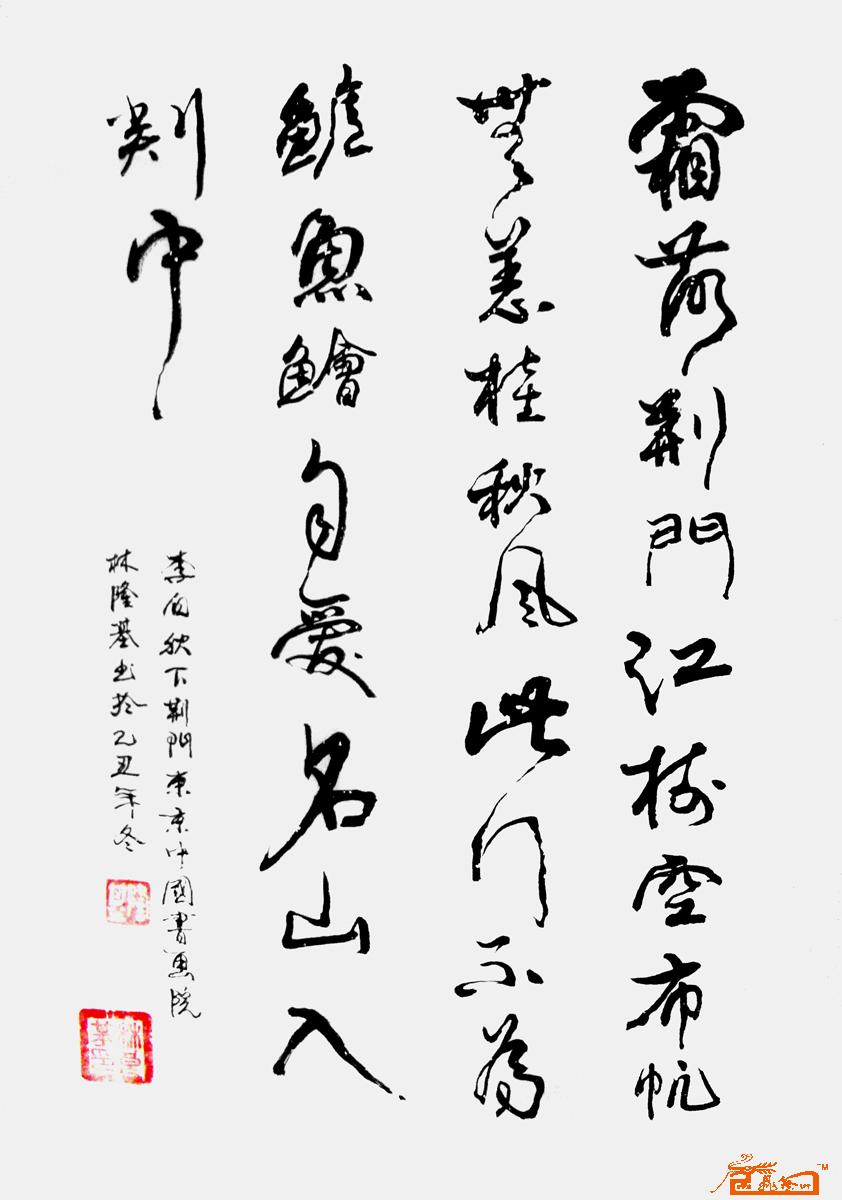 霜落荊門江樹空布帆
無恙桂秋風此行不為
鱸魚鱠自愛名山入
剡中
李白秋下荊門東京中國書畫院
林隆基書於乙丑年冬